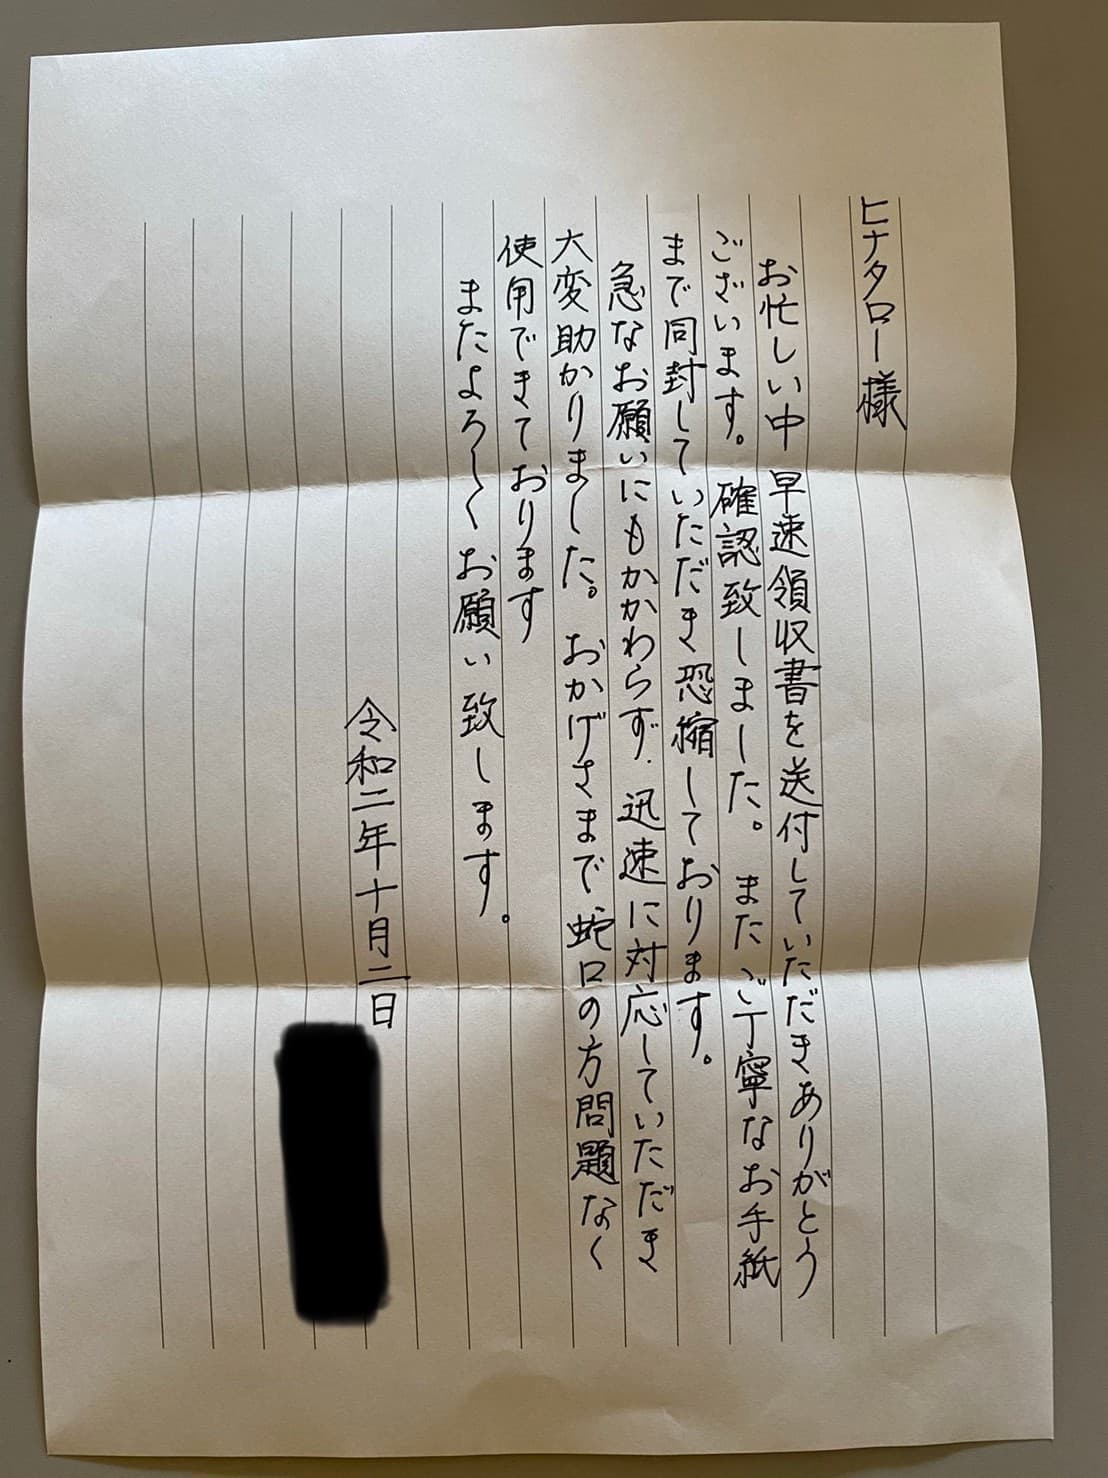 ヒナタロー様
お忙しい中 早速領収書を送付していただきありがとう
ございます。確認致しました。またご丁寧なお手紙
まで同封していただき恐縮しております。
急なお願いにもかかわらず、迅速に対応していただき
大変助かりました。おかげさまで、蛇口の方問題なく
使用できております
またよろしくお願い致します。
令和二年十月二日